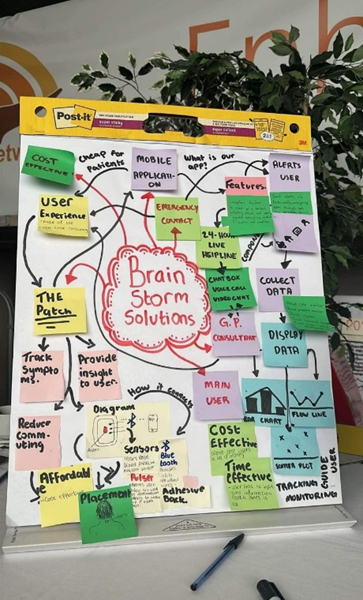 Enh
Post-it
super sticky
3M
COST
EFFECTIVE
Cheap for
Patients
MOBILE
APPLICATI-
ON
What is our
app?
ALERTS
USER
Features:
User
Experience
EMERGENCY
CONTACT
24-HOUR
LIVE
HELPLINE
Brain
Storm
Solutions
CHATBOX
VOICE CALL
VIDEO CHAT
COLLECT
DATA
THE
Patch
G.P.
CONSULTANT
DISPLAY
DATA
Track
Sympto
ms.
Provide
insight
to user.
How it connects
MAIN
USER
BAR CHART
FLOW LINE
Reduce
comm-
uting
Diagram
Sensors
Blue
tooth
Cost
Effective
SCATTER PLOT
GUIDE
USER
Affordabl
e
Placement
Adhesive
Back.
Time
effective
TRACKING
MONITORING